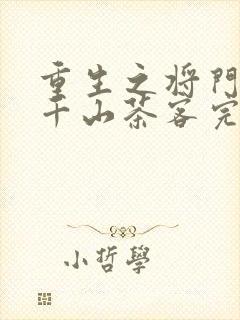 重生之将門
千山茶客完
小哲學